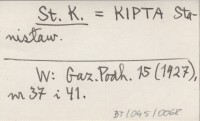 St. K. = KIPTA Sta-
nisław.
W: Gaz. Podh. 15 (1927),
nr 37 i 41.
BT/045/0068